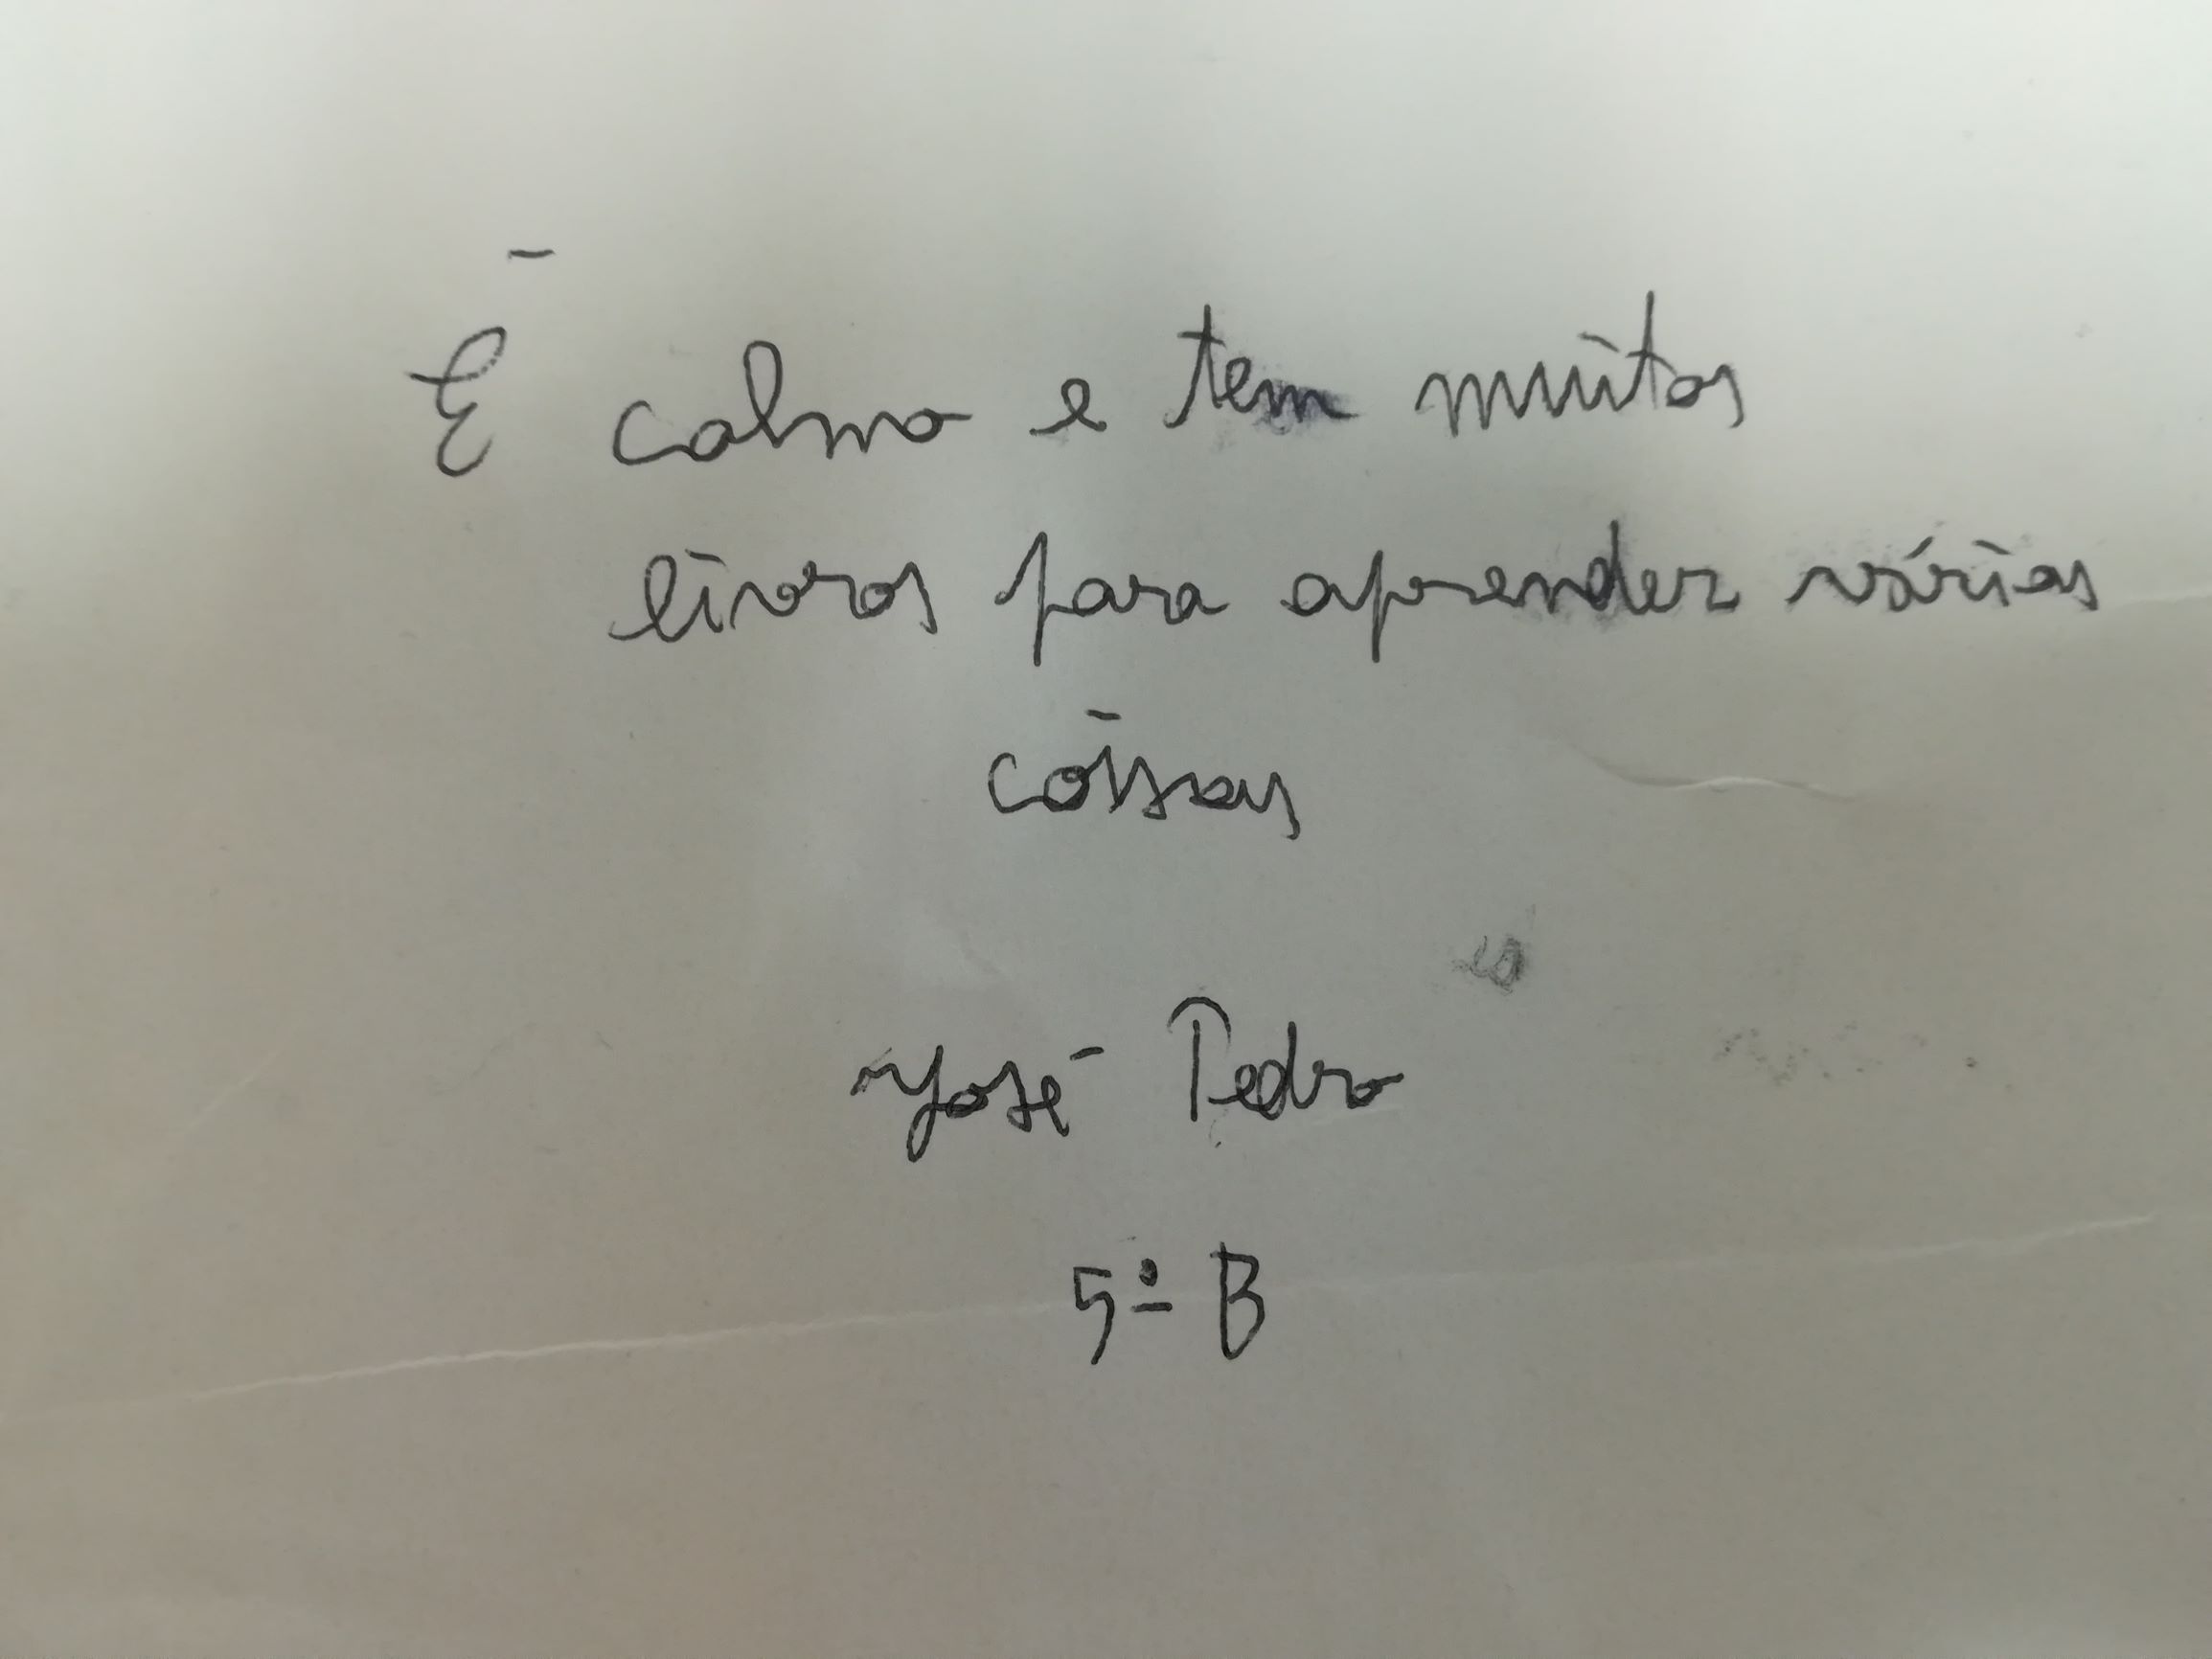 É calmo e tem muitos
livros para aprender várias
coisas
José Pedro
5º B